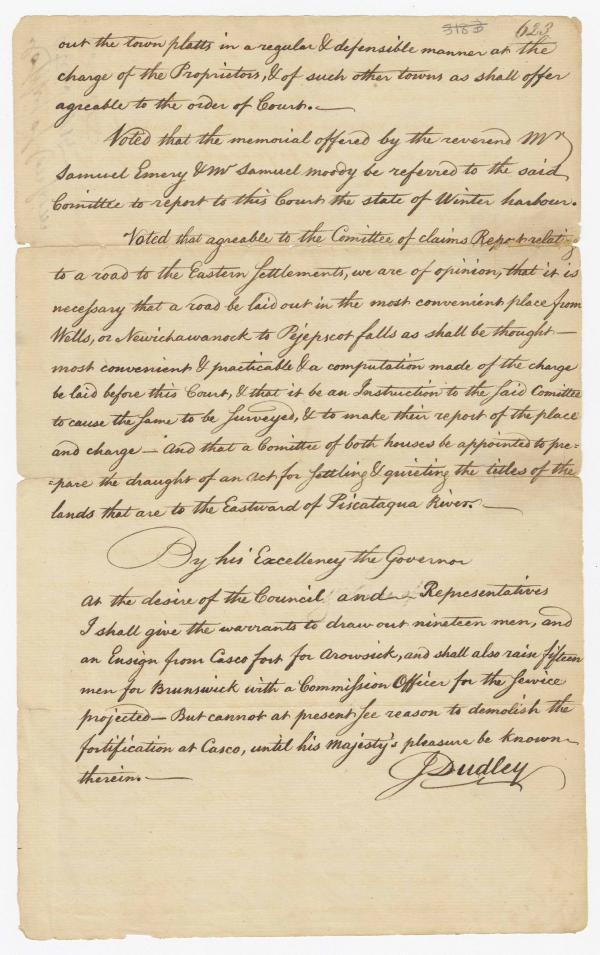 318 B 623
out the town platts in a regular & defensible manner at the
charge of the Proprietors, & of such other towns as shall offer
agreable to the order of Court. —
Voted that the memorial offered by the reverend Mr
Samuel Emery & Mr Samuel moody be referred to the said
Comittee to report to this Court the state of Winter harbour.
Voted that agreable to the Comittee of claims Report relating
to a road to the Eastern Settlements, we are of opinion, that it is
necessary that a road be laid out in the most convenient place from
Wells, or Newichawanock to Pejepscot falls as shall be thought —
most convenient & practicable & a computation made of the charge
be laid before this Court, & that it be an Instruction to the said Comittee
to cause the same to be Surveyed, & to make their report of the place
and charge — And that a Comittee of both houses be appointed to pre=
=pare the draught of an act for settling & quieting the titles of the
lands that are to the Eastward of Piscataqua River. —
By his Excellency the Governor
At the desire of the Council and Representatives
I shall give the warrants to draw out nineteen men, and
an Ensign from Casco fort for Arowsick, and shall also raise fifteen
men for Brunswick with a Commission Officer for the Service
projected — But cannot at present see reason to demolish the
fortification at Casco, until his Majesty's pleasure be known
therein. —
J Dudley